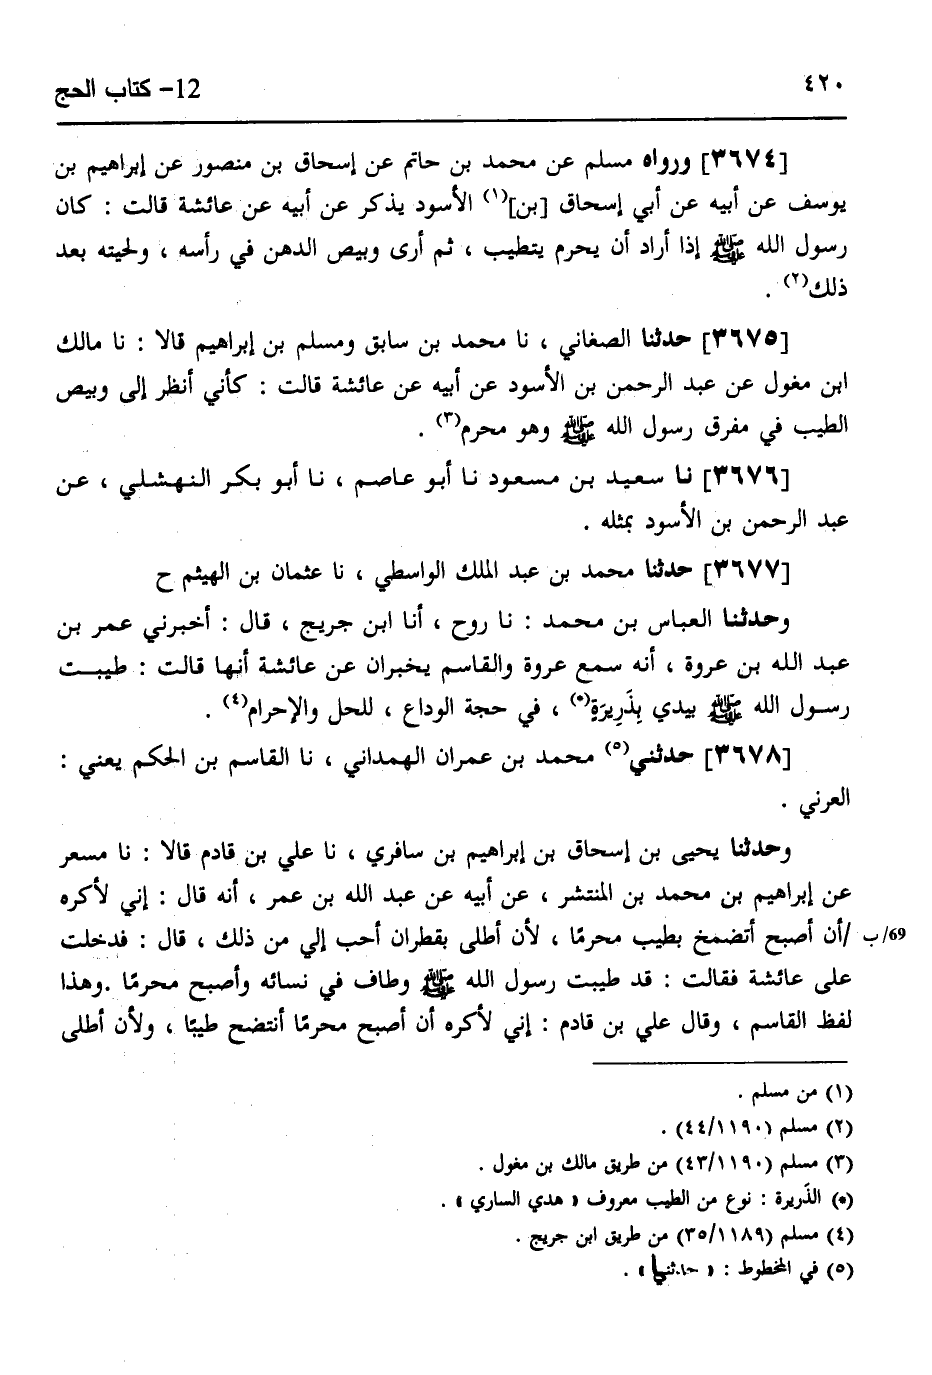 ٤٢٠
12- كتاب الحج
[٣٦٧٤] ورواه مسلم عن محمد بن حاتم عن إسحاق بن منصور عن إبراهيم بن
يوسف عن أبيه عن أبي إسحاق [بن](١) الأسود يذكر عن أبيه عن عائشة قالت : كان
رسول الله ﷺ إذا أراد أن يحرم يتطيب ، ثم أرى وبيص الدهن في رأسه ، ولحيته بعد
ذلك(٢) .
[٣٦٧٥] حدثنا الصغاني ، نا محمد بن سابق ومسلم بن إبراهيم قالا : نا مالك
ابن مغول عن عبد الرحمن بن الأسود عن أبيه عن عائشة قالت : كأني أنظر إلى وبيص
الطيب في مفرق رسول الله ﷺ وهو محرم(٣) .
[٣٦٧٦] نا سعيد بن مسعود نا أبو عاصم ، نا أبو بكر النهشلي ، عن
عبد الرحمن بن الأسود بمثله .
[٣٦٧٧] حدثنا محمد بن عبد الملك الواسطي ، نا عثمان بن الهيثم ح
وحدثنا العباس بن محمد : نا روح ، أنا ابن جريج ، قال : أخبرني عمر بن
عبد الله بن عروة ، أنه سمع عروة والقاسم يخبران عن عائشة أنها قالت : طيبت
رسول الله ﷺ بيدي بِذَرِيرَةٍ(*) ، في حجة الوداع ، للحل والإحرام(٤) .
[٣٦٧٨] حدثني(٥) محمد بن عمران الهمداني ، نا القاسم بن الحكم يعني :
العرني .
وحدثنا يحيى بن إسحاق بن إبراهيم بن سافري ، نا علي بن قادم قالا : نا مسعر
عن إبراهيم بن محمد بن المنتشر ، عن أبيه عن عبد الله بن عمر ، أنه قال : إني لأكره
69/ب /أن أصبح أتضمخ بطيب محرمًا ، لأن أطلى بقطران أحب إلي من ذلك ، قال : فدخلت
على عائشة فقالت : قد طيبت رسول الله ﷺ وطاف في نسائه وأصبح محرمًا .وهذا
لفظ القاسم ، وقال علي بن قادم : إني لأكره أن أصبح محرمًا أنتضح طيبًا ، ولأن أطلى
(١) من مسلم .
(٢) مسلم (٤٤/١١٩٠) .
(٣) مسلم (٤٣/١١٩٠) من طريق مالك بن مغول .
(*) الذَريرة : نوع من الطيب معروف « هدي الساري » .
(٤) مسلم (٣٥/١١٨٩) من طريق ابن جريج .
(٥) في المخطوط : « حدثنيا » .